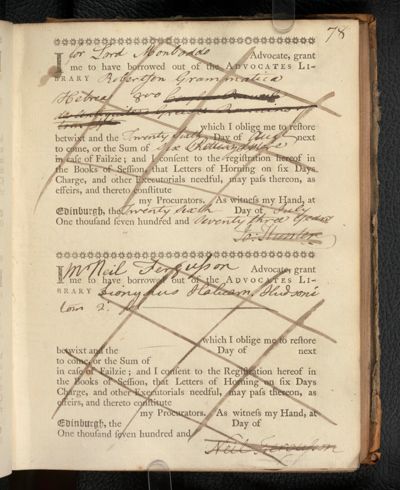 78
I for Lord Monboddo Advocate, grant
me to have borrowed out of the ADVOCATES LI-
BRARY Robertson Grammatica
Hebrea 8vo
which I oblige me to reſtore
betwixt and the Twenty sixth Day of next
to come, or the Sum of Six Shillings
in caſe of Failzie; and I conſent to the regiſtration hereof in
the Books of Seſſion, that Letters of Horning on ſix Days
Charge, and other Executorials needful, may paſs thereon, as
effeirs, and thereto conſtitute
my Procurators. As witneſs my Hand, at
Edinburgh, the Twenty sixth Day of July
One thousand ſeven hundred and Seventy three years
Jo. Hunter
I Mr Neil Fergusson Advocate, grant
me to have borrowed out of the ADVOCATES LI-
BRARY Dionysius Halicarn. Hudsoni
tom 2.
which I oblige me to reſtore
betwixt and the Day of next
to come, or the Sum of
in caſe of Failzie; and I conſent to the Regiſtration hereof in
the Books of Seſſion, that Letters of Horning on ſix Days
Charge, and other Executorials needful, may paſs thereon, as
effeirs, and thereto conſtitute
my Procurators. As witneſs my Hand, at
Edinburgh, the Day of
One thouſand ſeven hundred and
Neil Fergusson